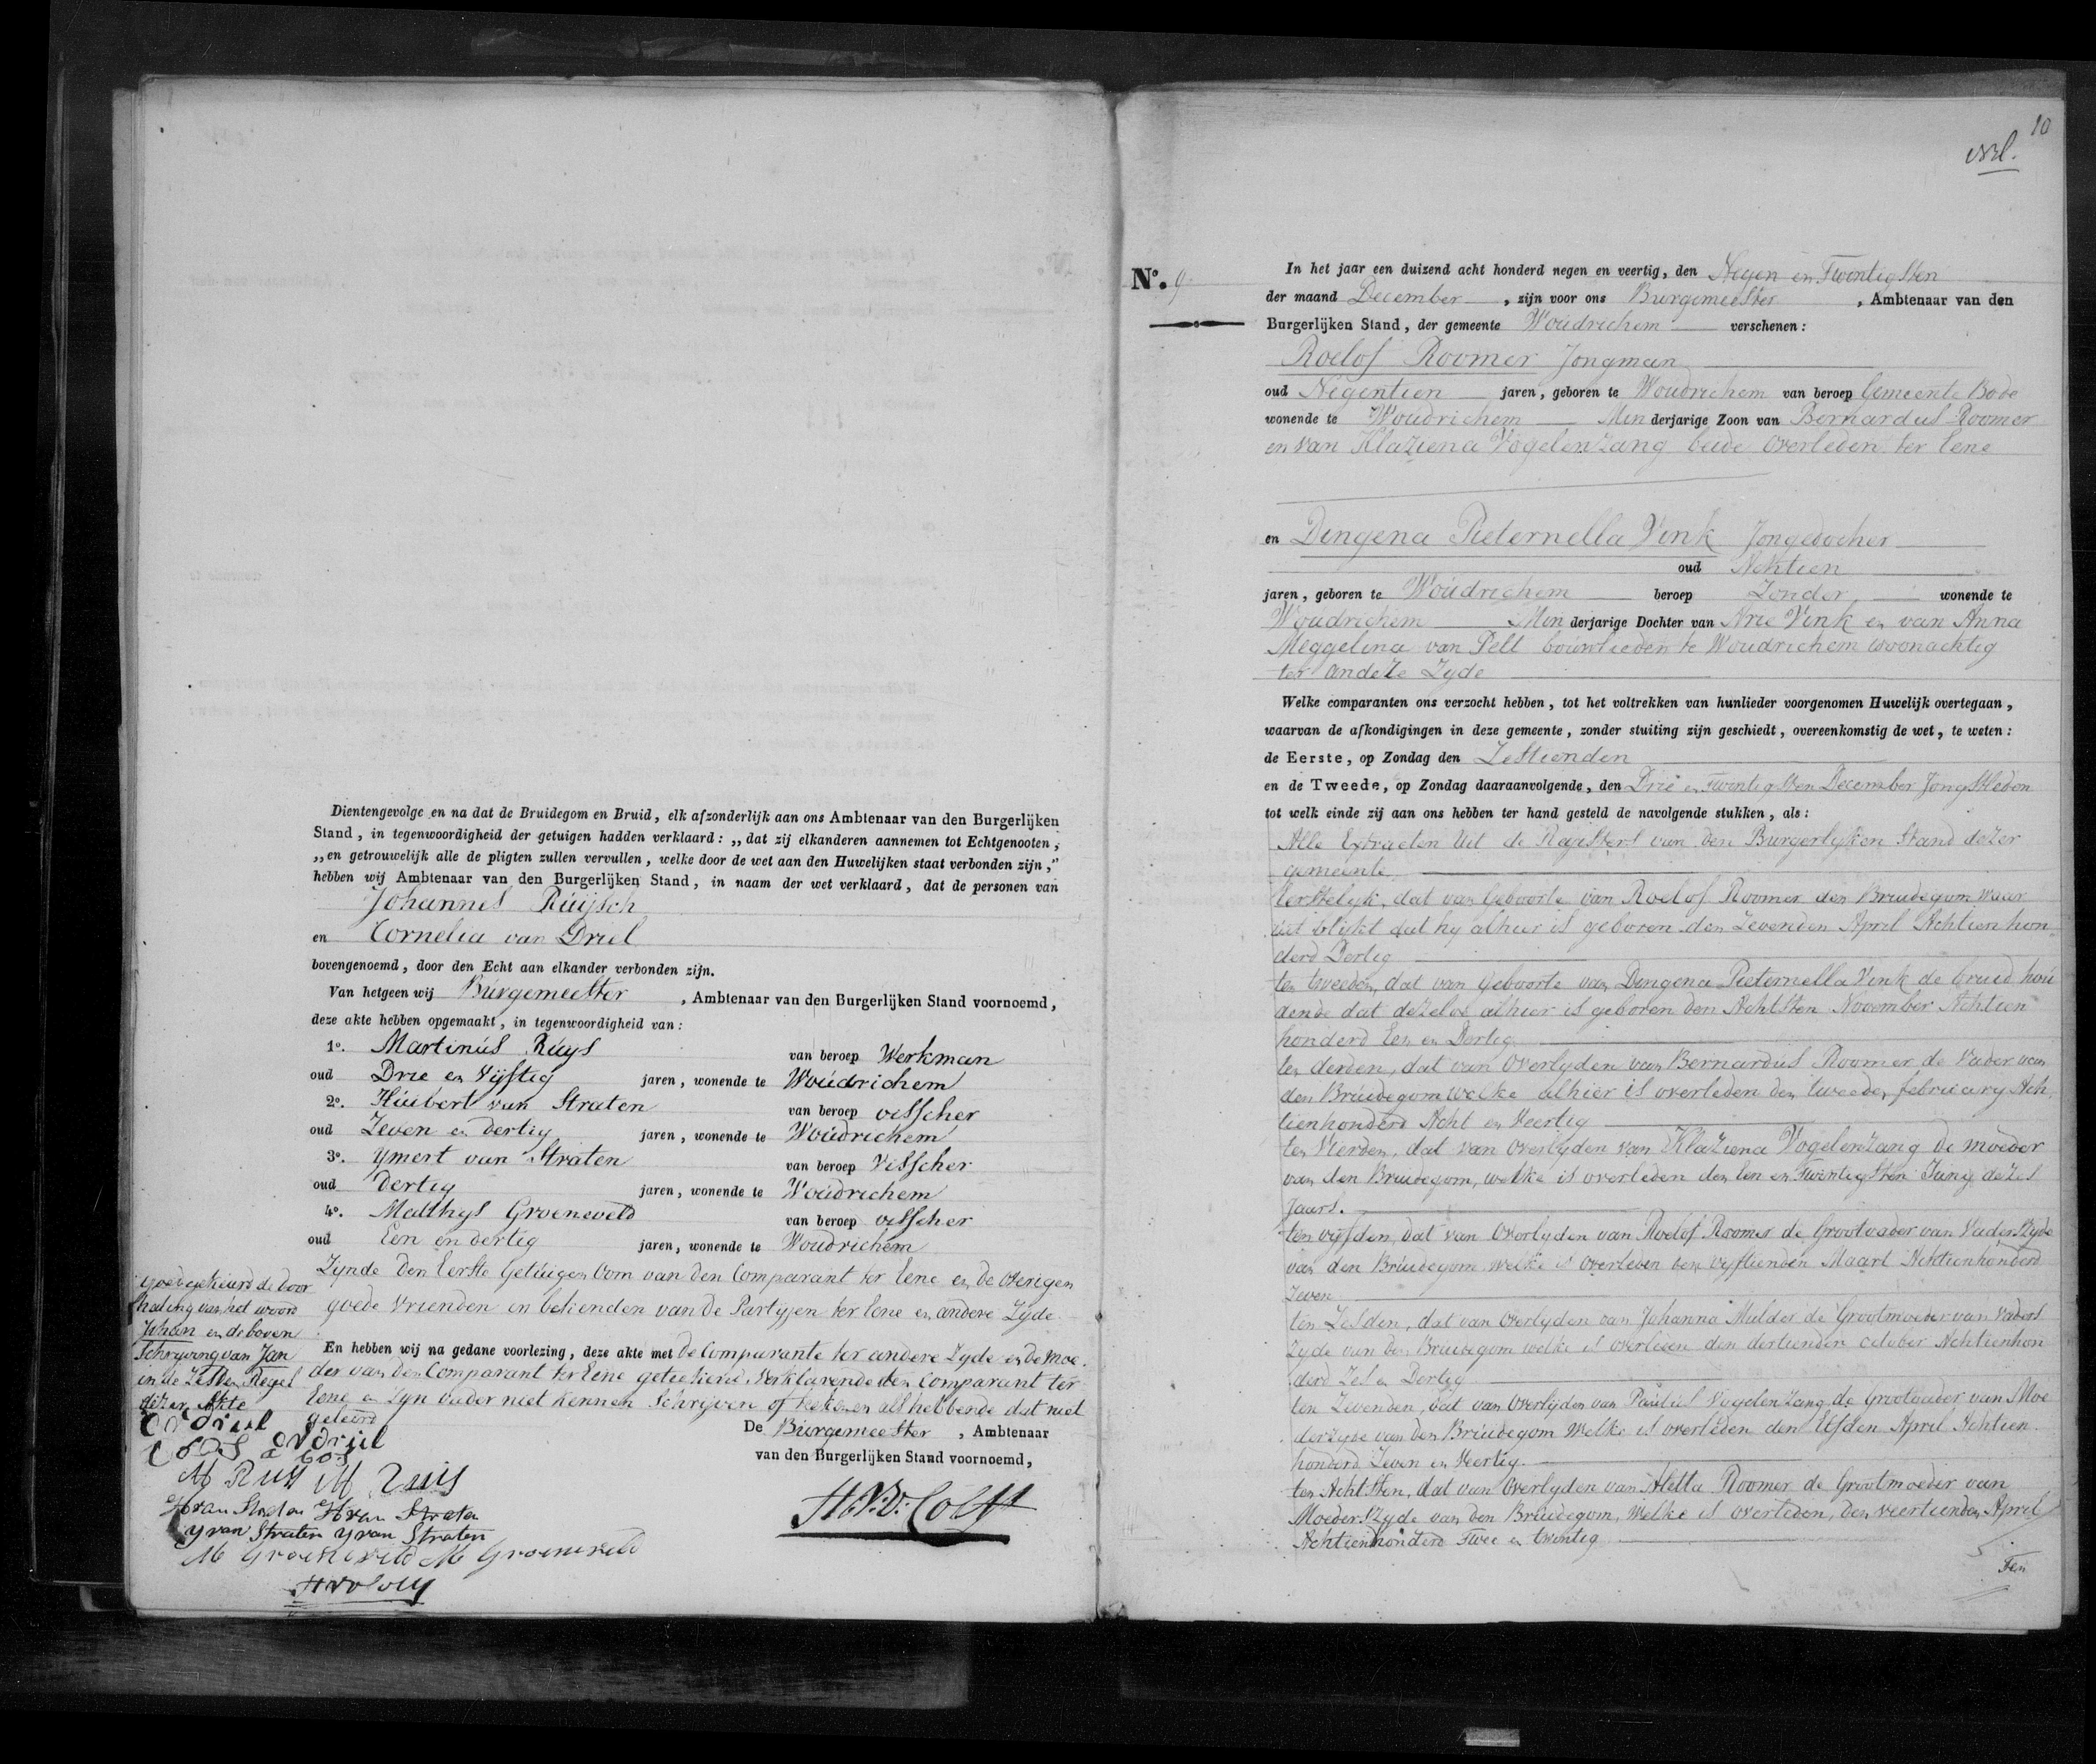 Dientengevolge en na dat de Bruidegom en Bruid, elk afzonderlijk aan ons Ambtenaar van den Burgerlijken
Stand, in tegenwoordigheid der getuigen hadden verklaard: „dat zij elkanderen aannemen tot Echtgenooten;
„en getrouwelijk alle de pligten zullen vervullen, welke door de wet aan den Huwelijken staat verbonden zijn,"
hebben wij Ambtenaar van den Burgerlijken Stand, in naam der wet verklaard, dat de personen van
Johannes Ruijsch
en Cornelia van Driel
bovengenoemd, door den Echt aan elkander verbonden zijn.
Van hetgeen wij Burgemeester, Ambtenaar van den Burgerlijken Stand voornoemd,
deze akte hebben opgemaakt, in tegenwoordigheid van:
1º. Martinus Ruys van beroep Werkman
oud Drie en Vijftig jaren, wonende te Woudrichem
2º. Huibert van Straten van beroep visscher
oud Zeven en dertig jaren, wonende te Woudrichem
3º. Ymert van Straten van beroep Visscher
oud Dertig jaren, wonende te Woudrichem
4º. Matthys Groeneveld van beroep visscher
oud Een en dertig jaren, wonende te Woudrichem
Zynde den Eerste Getuigen Oom van den Comparant ter Eene en de overigen
goede vrienden en bekenden van de Partyen ter Eene en andere Zyde
En hebben wij na gedane voorlezing, deze akte met de Comparante ter andere Zyde en de Moe
der van den Comparant ter Eene geteekend Verklarende den Comparant ter
Eene en Zyn vader niet kennen Schrijven of tekenen als hebbende dat niet
geleerd
goedgekeurd de door
haling van het woord
Johan en de boven
Schryving van Jan
in de Zesden Regel
dezer Akte
De Burgemeester, Ambtenaar
van den Burgerlijken Stand voornoemd,
C v Driel
C v Driel
M Ruis M Ruis
H van Straten H van Straten
Y van Straten Y van Straten
M Groeneveld M Groeneveld
10
Nº. 9
In het jaar een duizend acht honderd negen en veertig, den Negen en Twintigsten
der maand December, zijn voor ons Burgemeester, Ambtenaar van den
Burgerlijken Stand, der gemeente Woudrichem verschenen:
Roelof Roomer Jongman
oud Negentien jaren, geboren te Woudrichem van beroep Gemeente Bode
wonende te Woudrichem Min derjarige Zoon van Bernardus Roomer
en van Klaziena Vogelenzang beide overleden ter Eene
en Dingena Pieternella Vink Jongedocher
oud Achtien
jaren, geboren te Woudrichem beroep Zonder wonende te
Woudrichem Min derjarige Dochter van Arie Vink en van Anna
Meggelina van Pelt bouwlieden te Woudrichem woonachtig
ter andere Zyde
Welke comparanten ons verzocht hebben, tot het voltrekken van hunlieder voorgenomen Huwelijk overtegaan,
waarvan de afkondigingen in deze gemeente, zonder stuiting zijn geschiedt, overeenkomstig de wet, te weten:
de Eerste, op Zondag den Zestienden
en de Tweede, op Zondag daaraanvolgende, den Drie en Twintigsten December Jongstleden
tot welk einde zij aan ons hebben ter hand gesteld de navolgende stukken, als:
Alle Extracten Uit de Registers van den Burgerlyken Stand dezer
gemeente
Eerstelyk, dat van Geboorte van Roelof Roomer den Bruidegom waar
uit blykt dat hy alhier is geboren den Zevenden April Achtien hon
derd Dertig
ten tweeden, dat van Geboorte van Dingena Pieternella Vink de bruid hou
dende dat dezelve alhier is geboren den Achtsten November Achtien
honderd Een en Dertig
ten derden, dat van Overlyden van Bernardus Roomer de Vader van
den Bruidegom welke alhier is overleden den tweeden february Ach
tienhonderd Acht en Veertig
ten Vierden, dat van Overlyden van Klaziena Vogelenzang de moeder
van den Bruidegom, welke is overleden den Een en Twintigsten Juny dezes
Jaars.
ten vyfden, dat van Overlyden van Roelof Roomer de Grootvader van Vaders Zyde
van den Bruidegom welke is Overleden den vyftienden Maart Achtienhonderd
Zeven
ten Zesden, dat van Overlyden van Johanna Mulder de Grootmoeder van Vaders
Zyde van den Bruidegom welke is overleden den dertienden October Achtienhon
derd Zes en Dertig
ten Zevenden, dat van Overlyden van Paulus Vogelenzang de Grootvader van Moe
derzyde van den Bruidegom Welke is overleden den Elfden April Achtien
honderd Zeven en Veertig.
ten Achtsten, dat van Overlyden van Aletta Roomer de Grootmoeder van
Moeders Zyde van den Bruidegom, Welke is overleden, den veertienden April
Achtienhonderd Twee en twintig
Ten